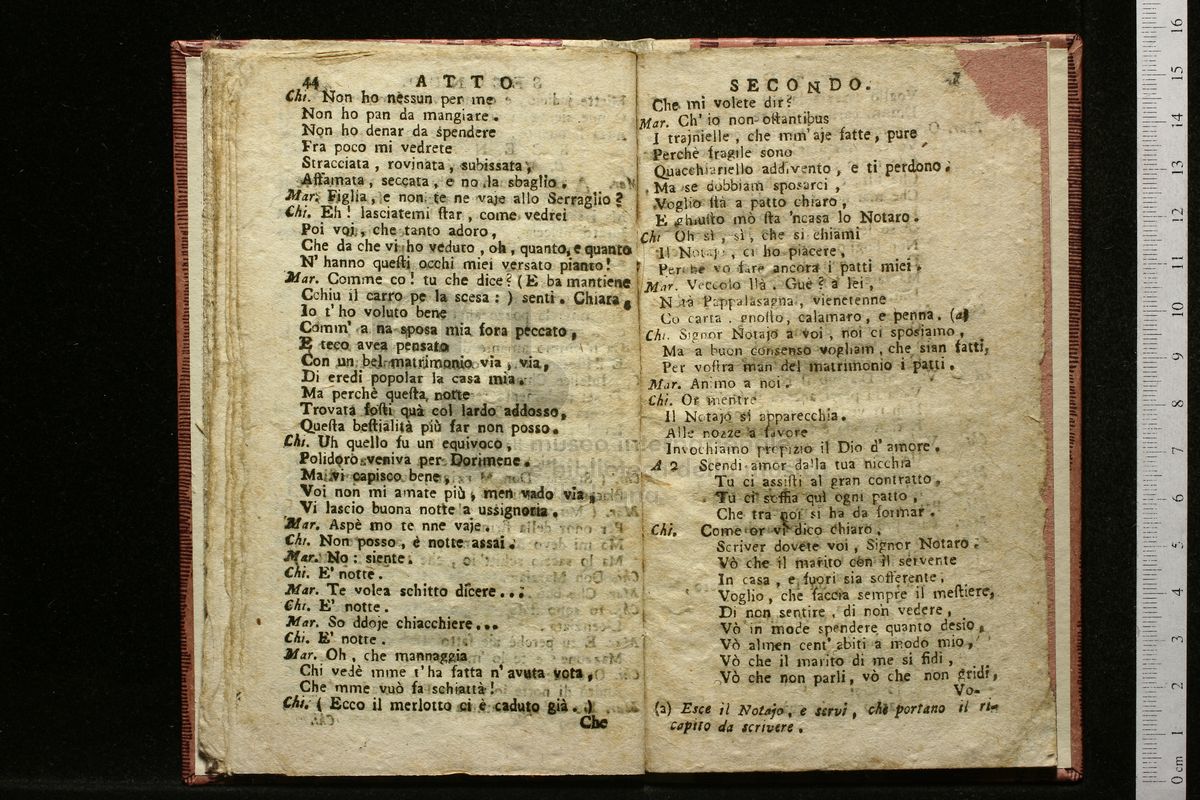 44 ATTO
Chi. Non ho nessun per me
Non ho pan da mangiare.
Non ho denar da spendere
Fra poco mi vedrete
Stracciata, rovinata, subissata,
Affamata, seccata, e no la sbaglio.
Mar. Figlia, e non te ne vaje allo Serraglio?
Chi. Eh! lasciatemi star, come vedrei
Poi voi, che tanto adoro,
Che da che vi ho veduto, oh, quanto, e quanto
N' hanno questi occhi miei versato pianto!
Mar. Comme co! tu che dice? (E ba mantiene
Cchiu il carro pe la scesa:) senti. Chiara,
Io t' ho voluto bene
Comm' a na sposa mia fora peccato,
E teco avea pensato
Con un bel matrimonio via, via,
Di eredi popolar la casa mia.
Ma perchè questa notte
Trovata fosti quà col lardo addosso,
Questa bestialità più far non posso.
Chi. Uh quello fu un equivoco,
Polidoro veniva per Dorimene.
Ma vi capisco bene,
Voi non mi amate più, men vado via,
Vi lascio buona notte a ussignoria.
Mar. Aspè mo te nne vaje.
Chi. Non posso, è notte assai.
Mar. No: siente.
Chi. E' notte.
Mar. Te volea schitto dicere...
Chi. E' notte.
Mar. So ddoje chiacchiere...
Chi. E' notte.
Mar. Oh, che mannaggia
Chi vedè mme t'ha fatta n' avuta vota,
Che mme vuò fa schiattà!
Chi. (Ecco il merlotto ci è caduto già.)
Che
SECONDO.
Che mi volete dir?
Mar. Ch' io non ostantibus
I trajnielle, che mm' aje fatte, pure
Perchè fragile sono
Quacchiariello addivento, e ti perdono.
Ma se dobbiam sposarci,
Voglio stà a patto chiaro,
E ghiusto mò sta 'ncasa lo Notaro.
Chi. Oh sì, sì, che si chiami
Il Notajo, ci ho piacere,
Perchè vo fare ancora i patti miei.
Mar. Veccolo llà. Guè? a lei,
Notà Pappalasagna, vienetenne
Co carta, gnosto, calamaro, e penna. (a)
Chi. Signor Notajo a voi, noi ci sposiamo,
Ma a buon consenso vogliam, che sian fatti,
Per vostra man del matrimonio i patti.
Mar. Animo a noi.
Chi. Or mentre
Il Notajo si apparecchia.
Alle nozze a favore
Invochiamo propizio il Dio d' amore.
A 2 Scendi amor dalla tua nicchia
Tu ci assisti al gran contratto,
Tu ci soffia quì ogni patto,
Che tra noi si ha da formar.
Chi. Come or vi dico chiaro,
Scriver dovete voi, Signor Notaro.
Vò che il marito con il servente
In casa, e fuori sia sofferente,
Voglio, che faccia sempre il mestiere,
Di non sentire, di non vedere,
Vò in mode spendere quanto desio,
Vò almen cent' abiti a modo mio,
Vò che il marito di me si fidi,
Vò che non parli, vò che non gridi,
Vo-
(a) Esce il Notajo, e servi, che portano il ri-
capito da scrivere.